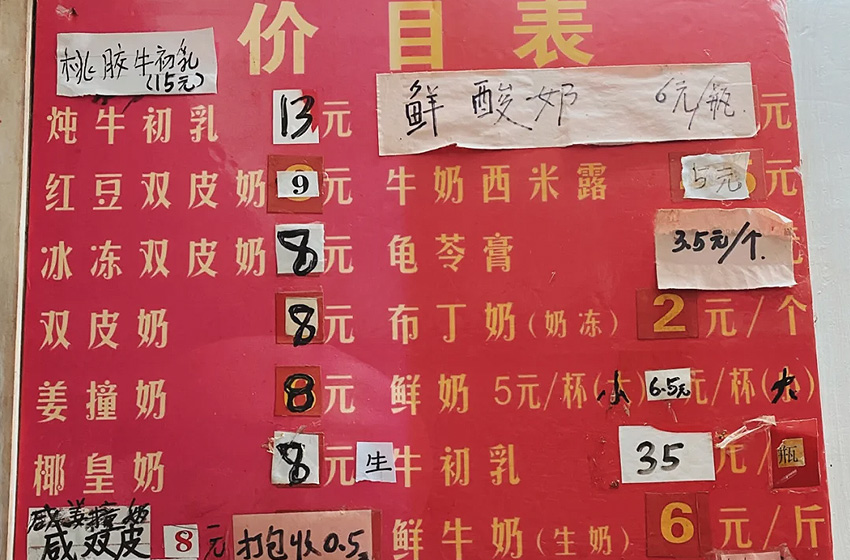 价目表
桃胶牛初乳
(15元)
炖牛初乳 13元
红豆双皮奶 9元
冰冻双皮奶 8元
双皮奶 8元
姜撞奶 8元
椰皇奶 8元
咸姜撞奶
咸双皮 8元
打包收0.5
鲜酸奶 6元/瓶 元
牛奶西米露 5元 元
龟苓膏 3.5元/个.
布丁奶(奶冻) 2元/个
鲜奶 5元/杯(小 6.5元/杯(大)
生牛初乳 35元/瓶
鲜牛奶(生奶) 6元/斤